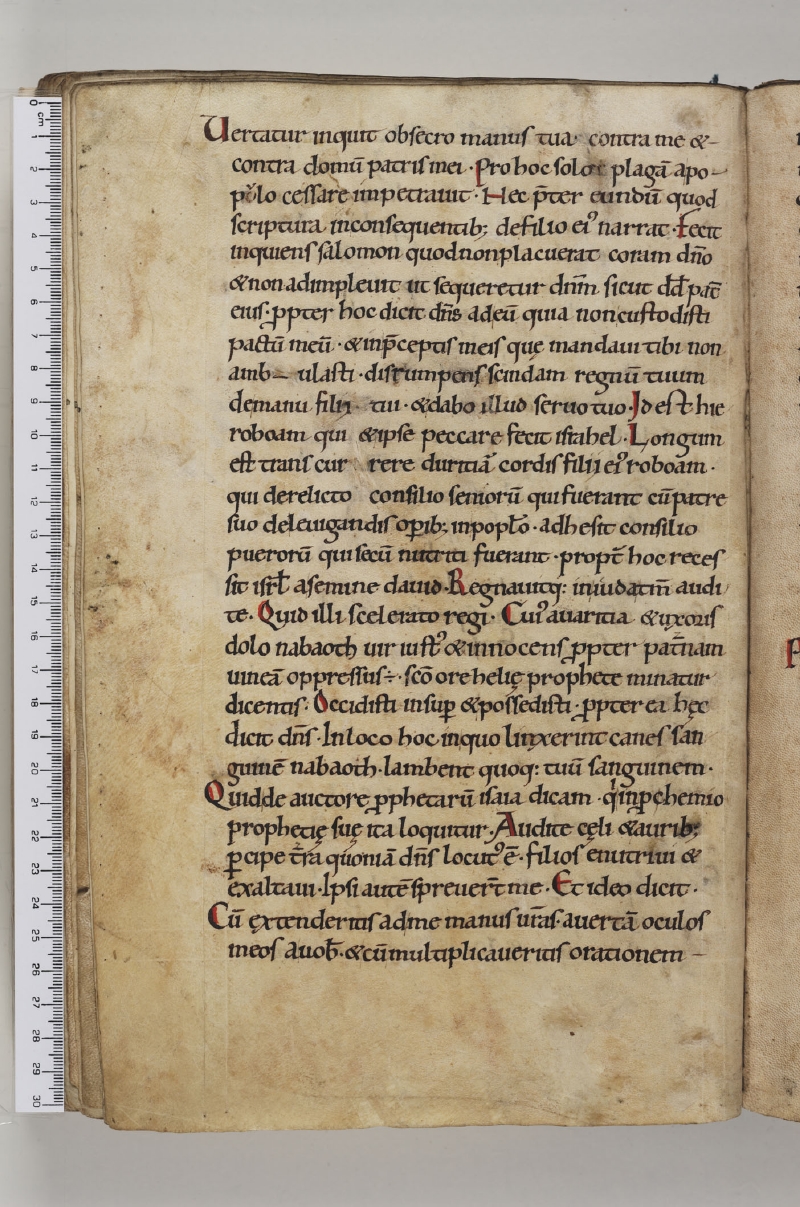 Uertatur inquit obsecro manus tua contra me &
contra domū patris mei · Pro hoc solo plagā a po
pulo cessare impetrauit · Hec p̄ter eundū quod
scriptura inconsequentib; de filio ei᾿ narrat · Fecit
inquiens salomon quod non placuerat coram dño
& non adimpleuit ut sequeretur dñm sicut dđ pat̄
eius · ꝓpter hoc dicit dñs ad eū quia non custodisti
pactū meū · & in p̄ceptis meis quę mandaui tibi non
amb— ulasti · disrumpens scindam regnū tuum
de manu filii tui · & dabo illud seruo tuo · Id est hie
roboam qui & ipse peccare fecit israhel · Longum
est transcur rere duritiā cordis filii ei᾿ roboam ·
qui derelicto consilio seniorū qui fuerant cū patre
suo de leuigandis opib; in poplo · adhesit consilio
puerorū qui secū nutriti fuerant · propt̄ hoc reces
sit isrł a semine dauid · Regnauitq: in iuda tm̄ audi
te · Quid illi scelerato regi · Cui᾿ auaritia & uxoris
dolo nabaoth uir iust᾿ & innocens ꝓpter pat̄nam
uineā oppressus ÷ · sc̄o ore helię prophete minatur
dicentis · Occidisti insuꝑ & possedisti · ꝓpter ea hęc
dicit dñs · In loco hoc in quo linxerint canes san
guinē nabaoth · lambent quoq: tuū sanguinem ·
Quid de auctore ꝓphetarū isaia dicam · q̇ in ꝓhemio
prophetię suę ita loquitur · Audite cęli & aurib;
ꝑcipe t̄ra qūoniā dñs locut᾿ ē · filios enutriui &
exaltaui · Ipsi autē spreuer̄t me · Et ideo dicit ·
Cū extenderitis ad me manus ūras · auertā oculos
meos a uob̄ · & cū multiplicaueritis orationem —